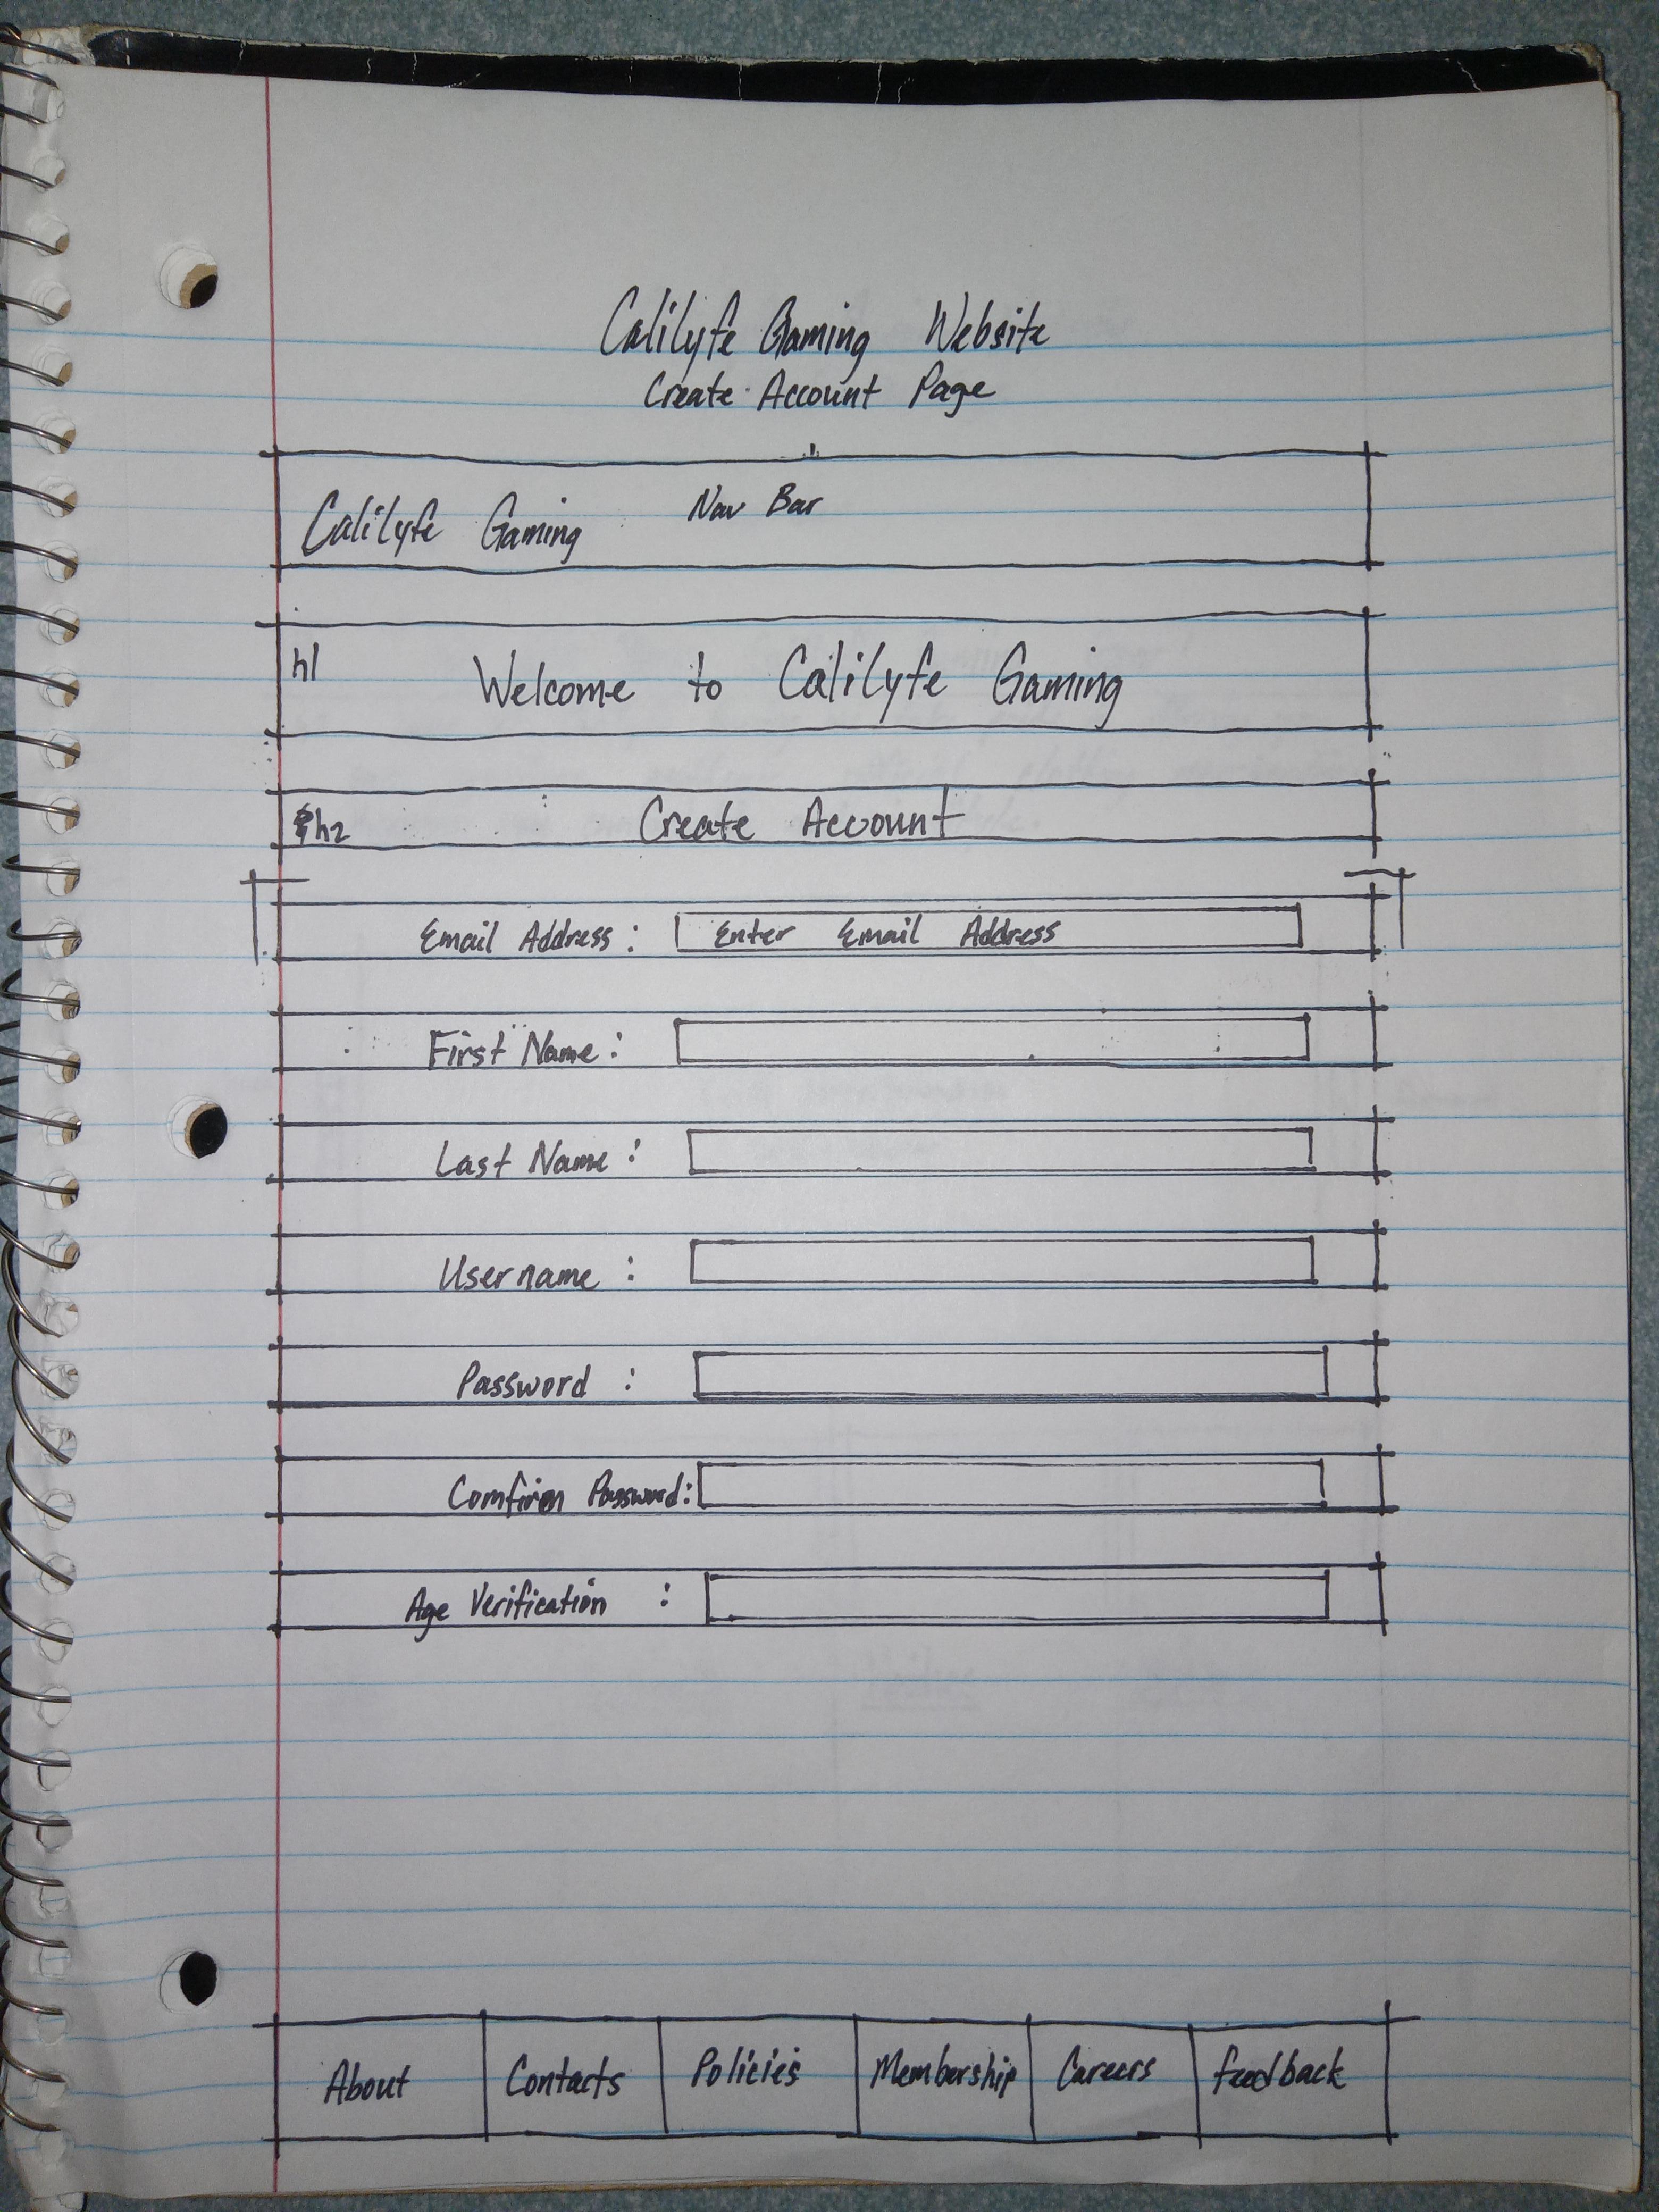 Calilyfe Gaming Website
Create Account Page
Nav Bar
Calilyfe Gaming
h1
Welcome to Calilyfe Gaming
h2 Create Account
Email Address : Enter Email Address
First Name :
Last Name :
Username :
Password :
Comfirm Password:
Age Verification :
About Contacts Policies Membership Careers feedback